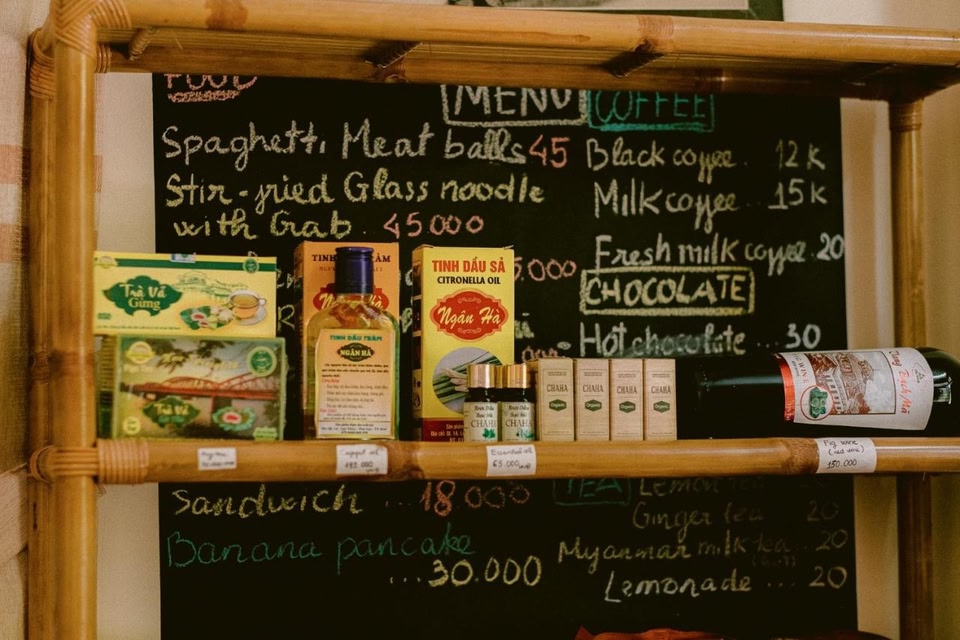 FOOD
MENU
COFFEE
Spaghetti Meat balls 45
Stir-fried Glass noodle
with Crab. 45000
Black coffee. 12k
Milk coffee.. 15k
Fresh milk coffee. 20
CHOCOLATE
Hot chocolate .. 30
5.000
Trà Vả
Gừng
Trà Vả
TINH DẦU TRÀM
NGÂN HÀ
TINH DẦU SẢ
CITRONELLA OIL
Ngân Hà
CHAHA
CHAHA
CHAHA
Organic
CHAHA
Organic
CHAHA
Organic
CHAHA
Organic
WINE
Essential oil
65.000
Fig wine
(red wine)
150.000
Sandwich ... 18.000
Banana pancake
...30.000
TEA
Lemon tea
Ginger tea 20
Myanmar milk tea. 20
Lemonade ... 20